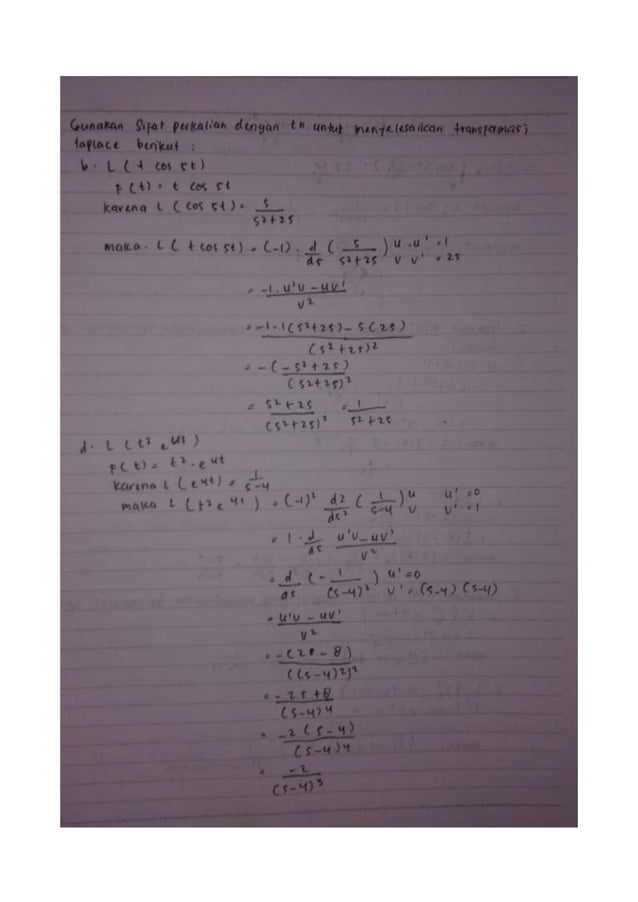 Gunakan Sifat perkalian dengan tn untuk menyelesaikan transformasi
laplace berikut :
b. L (t cos 5t)
F(t) = t cos 5t
karena L (cos 5t) = s / s²+25
maka. L (t cos 5t) = (-1). d/ds (s / s²+25) u v u' = 1 v' = 2s
= -1. u'v - uv' / v²
= -1. 1(s²+25) - s(2s) / (s²+25)²
= -(-s²+25) / (s²+25)²
= s²+25 / (s²+25)² = 1 / s²+25
d. L (t² e4t)
F(t) = t². e4t
karena L (e4t) = 1 / s-4
maka L (t² e4t) = (-1)² d2/ds² (1 / s-4) u v u' = 0 v' = 1
= 1. d/ds u'v - uv' / v²
= d/ds (- 1 / (s-4)²) u' = 0 v' = (s-4) (s-4)
= u'v - uv' / v²
= -(2s - 8) / ((s-4)2)²
= -2s + 8 / (s-4)4
= -2 (s-4) / (s-4)4
= -2 / (s-4)³